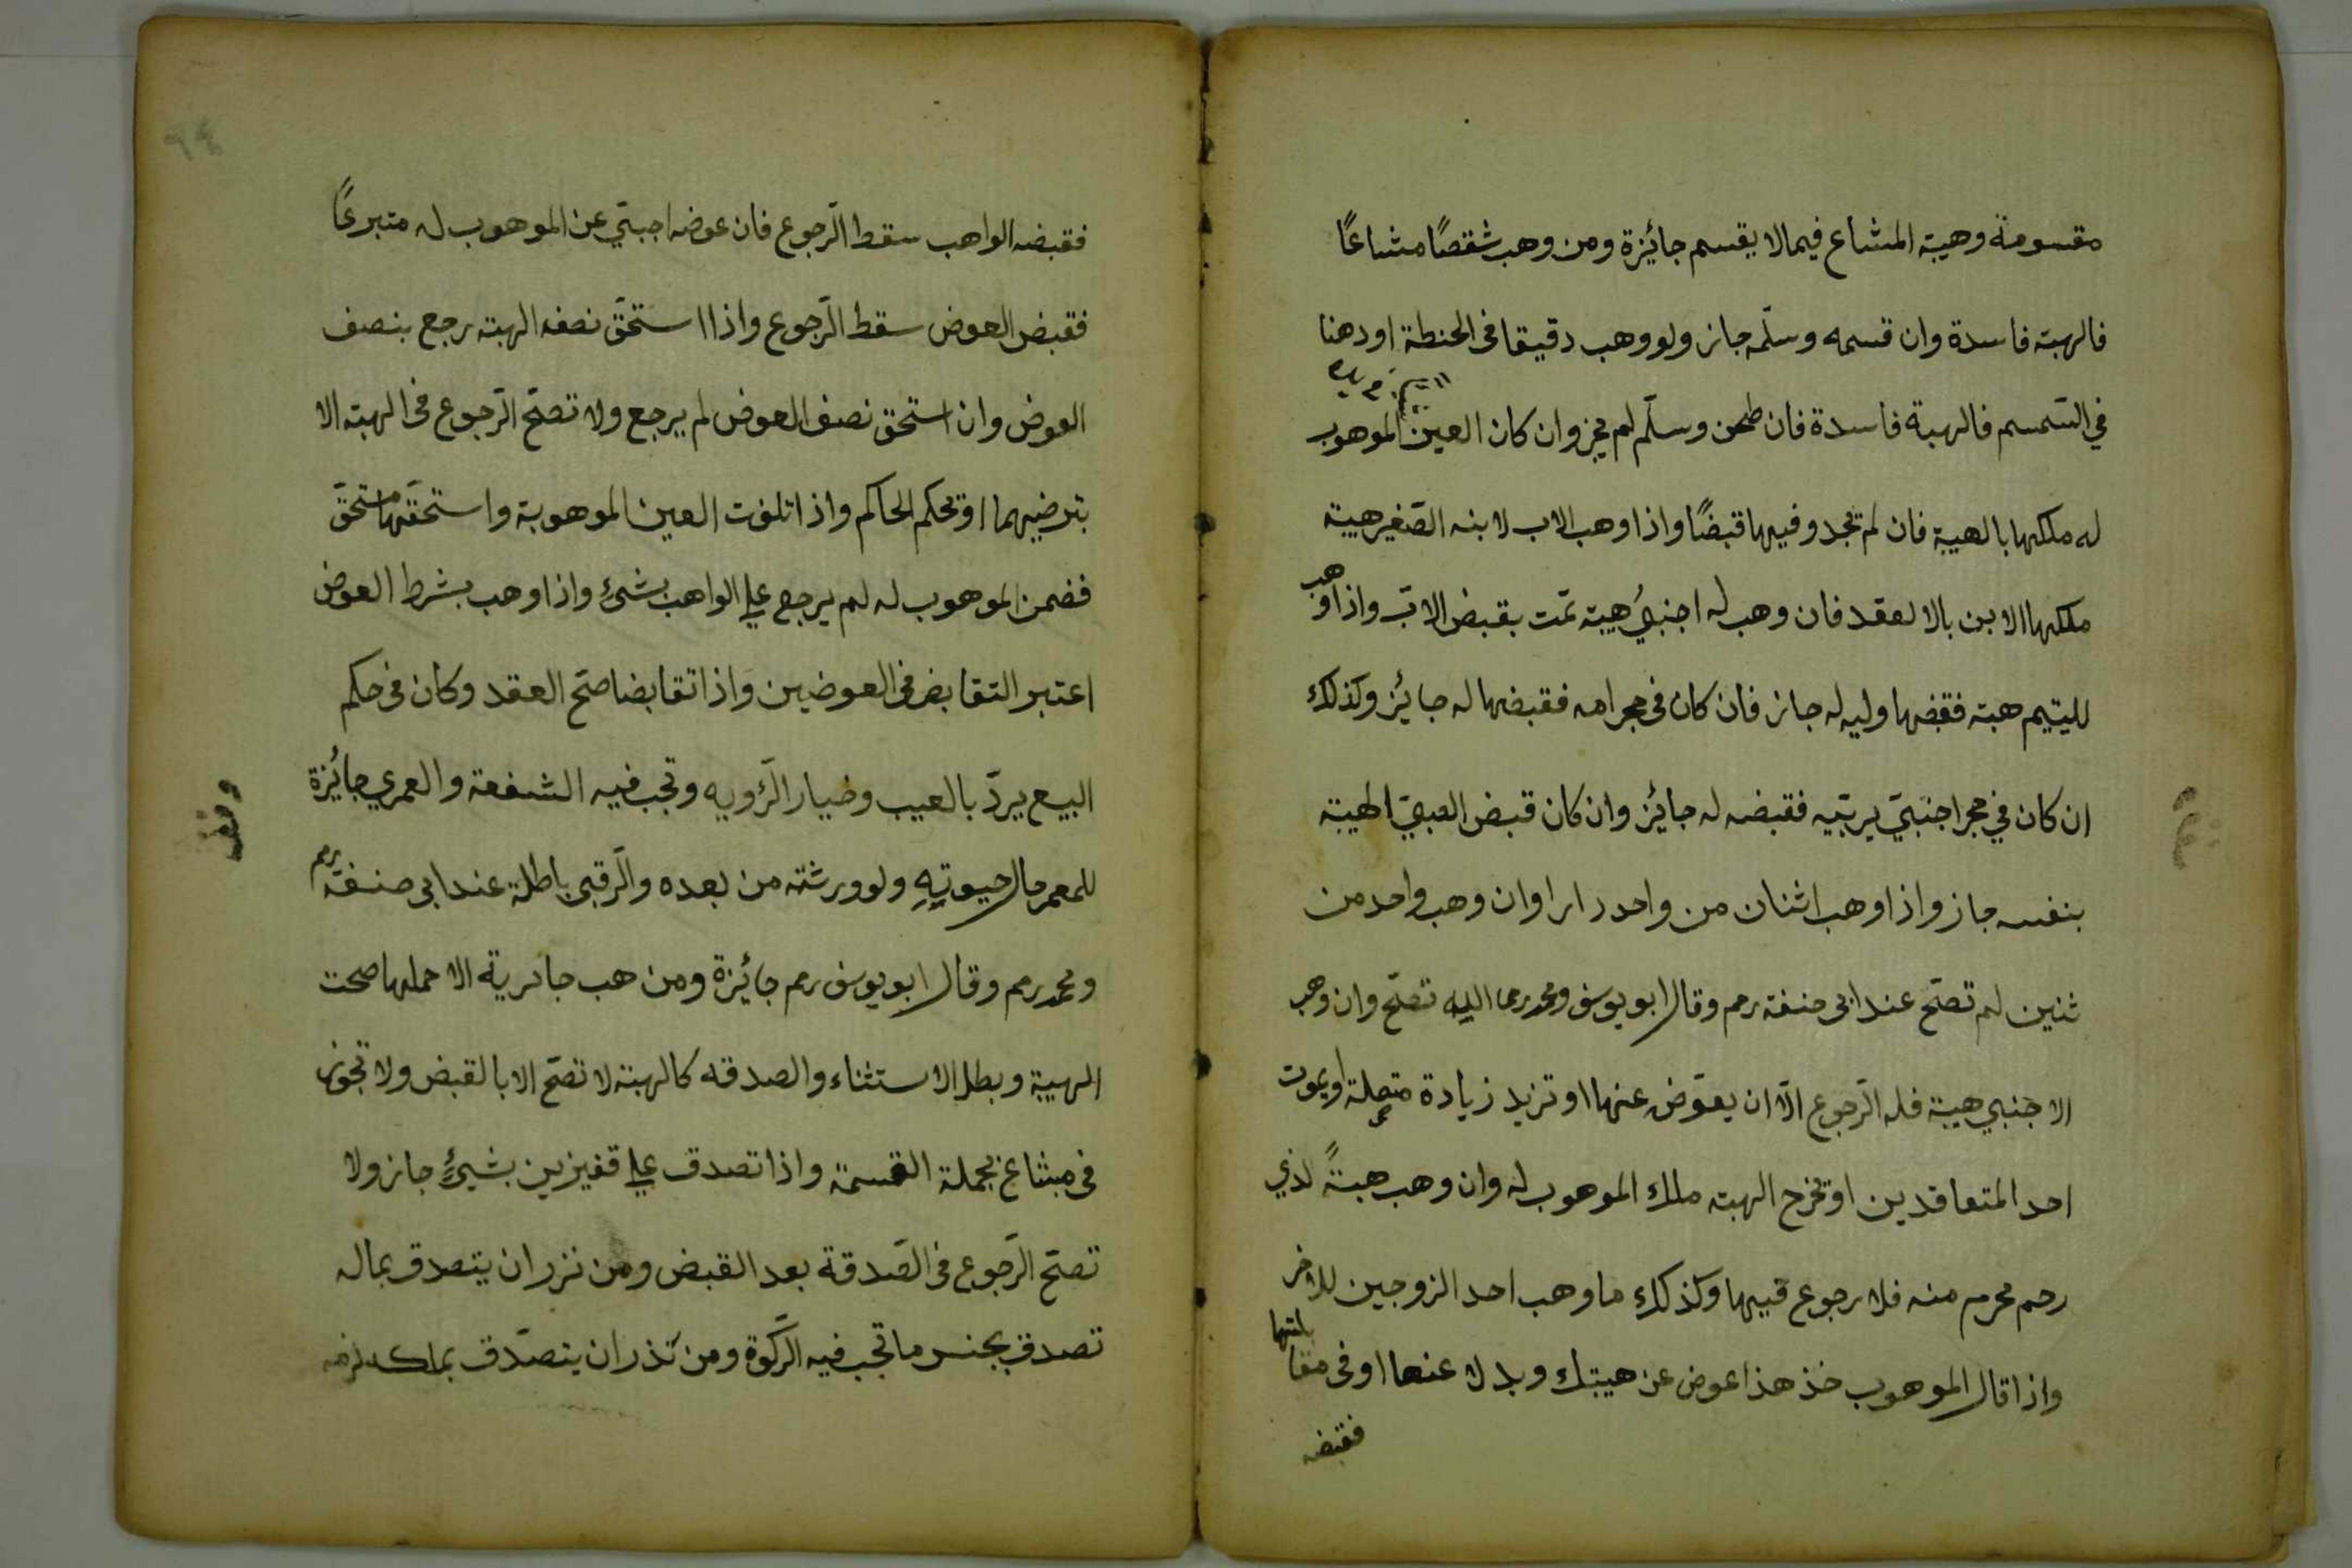 مقسومة وهيبة المشاع فيما لا يقسم جائزة ومن وهب شقصًا مشاعًا
فالهبة فاسدة وان قسمه وسلّمه جاز ولو وهب دقيقا فى الحنطة او دهنا
في السّمسم فالهبة فاسدة فان طحن وسلّم لم يجز وان كان العين الموهوب
له ملكها بالهيبة فان لم تجدو فيها قبضًا واذا وهب الاب لابنه الصّغير هيبة
ملكها الابن بالالعقد فان وهب له اجنبيُ هيبة تمّت بقبض الابّ واذا وهب
لليتيم هبة فقضها وليه له جاز فان كان فى حجر امه فقبضها له جايئز وكذلك
ان كان في حجر اجنبيّ يربّيه فقبضه له جايئز وان كان قبض الصبيّ الهيبة
بنفسه جاز واذا وهب اثنان من واحد دارا وان وهب واحد من
ثنين لم تصحّ عند ابى حنفة رحم وقال ابو يوسف ومحمد رحما الليه تصحّ وان وهب
الاجنبي هيبة فله الرّجوع الّا ان يعوّض عنها او تزيد زيادة متصلة او يموت
احد المتعاقدين او تخرج الهبته ملك الموهوب له وان وهب هبةً لذي
رحم محرم منه فلا رجوع فيها وكذلك ما وهب احد الزوجين للاخر
واذا قال الموهوب خذ هذا عوض عن هيبتك وبدلا عنها او فى مقابلتها
فقبضه
فقبضه الواهب سقط الرّجوع فان عوضه اجبنيّ عن الموهوب له متبرعًا
فقبض العوض سقط الرّجوع واذا استحقّ نصف الهبته رجع بنصف
العوض وان استحق نصف العوض لم يرجع ولا تصحّ الرّجوع فى الهبته الا
بترضيهما او تحكم الحاكم واذا تلفت العين الموهوبة واستحقّها مستحقّ
فضمن الموهوب له لم يرجع علي الواهب بشئ واذا وهب بشرط العوض
اعتبر التقابض فى العوضين واذا تقابضا صحّ العقد وكان فى حكم
البيع يردّ بالعيب وخيار الرّؤيه وتجب فيه الشفعة والعمري جائزة
للمعمر حال حيوتهِ ولو ورثته من بعده والرّقبى باطلة عند ابى حنفة رحم
ومحمد رحم وقال ابو يوسف رحم جائزة ومن هب جارية الا حملها صحت
الهيبة وبطل الاستثناء والصدقه كالهبته لا تصحّ الا بالقبض ولا تجوز
فى مشاع بجملة القسمة واذا تصدق علي فقيزين بشيءٍ جاز ولا
تصحّ الرّجوع فى الصّدقة بعد القبض ومن نزر ان يتصدق بماله
تصدق بجنس ما تجب فيه الزّكوة ومن نذر ان يتصدّق بملكه لزمه
وقف